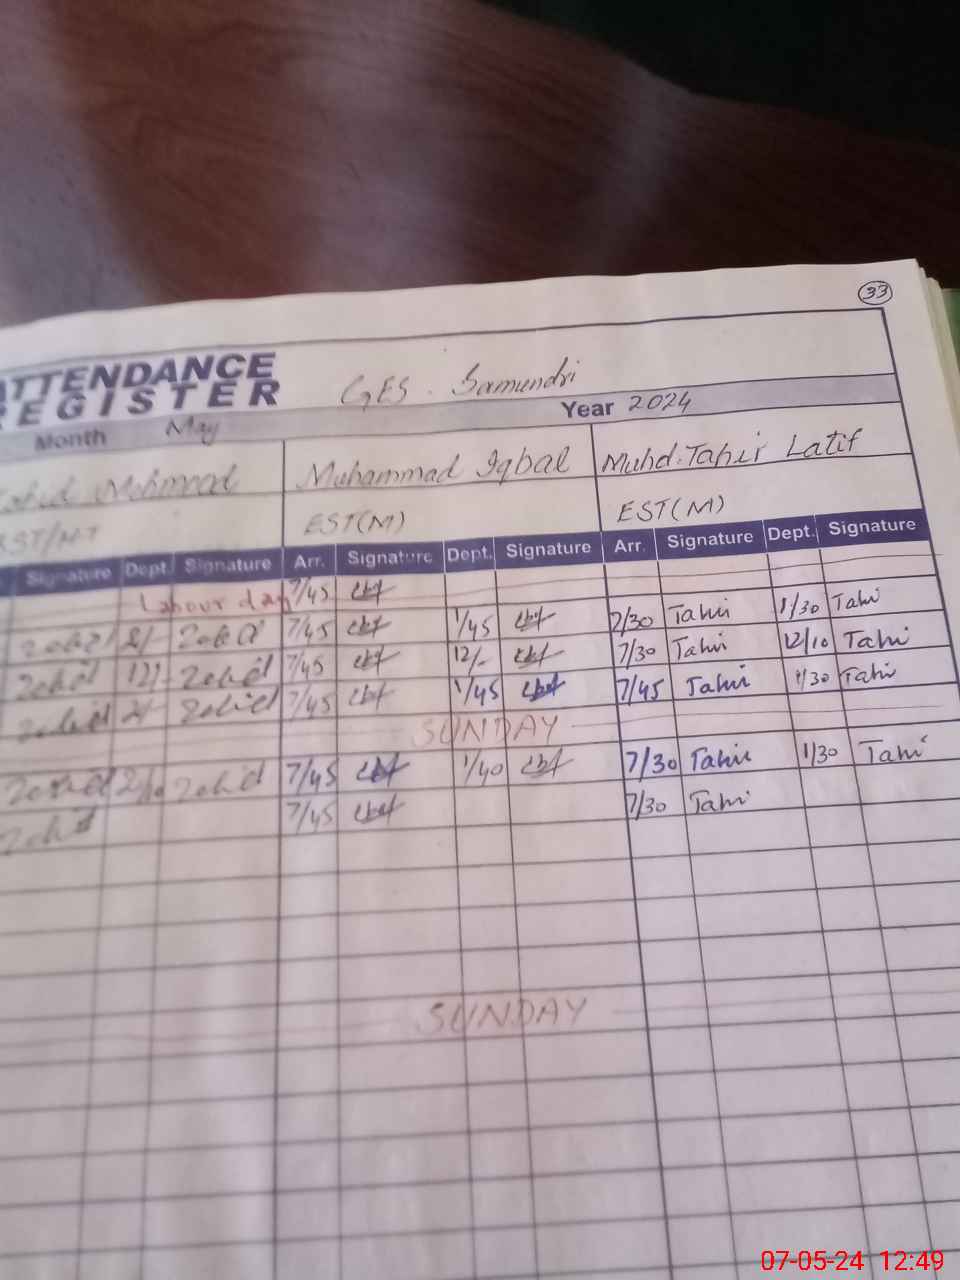 33
ATTENDANCE REGISTER GES. Samundri
Month May Year 2024
Mehmood Muhammad Iqbal Muhd. Tahir Latif
EST(M) EST(M)
Signature Dept. Signature Arr. Signature Dept. Signature Arr. Signature Dept. Signature
Labour day 7/45
2/- Zahid 7/45 1/45 7/30 Tahir 1/30 Tahir
Zahid 12/- Zahid 7/45 12/- 7/30 Tahir 12/10 Tahir
Zahid 2/- Zahid 7/45 1/45 7/45 Tahir 1/30 Tahir
SUNDAY
Zahid 2/10 Zahid 7/45 1/40 7/30 Tahir 1/30 Tahir
Zahid 7/45 7/30 Tahir
SUNDAY
07-05-24 12:49